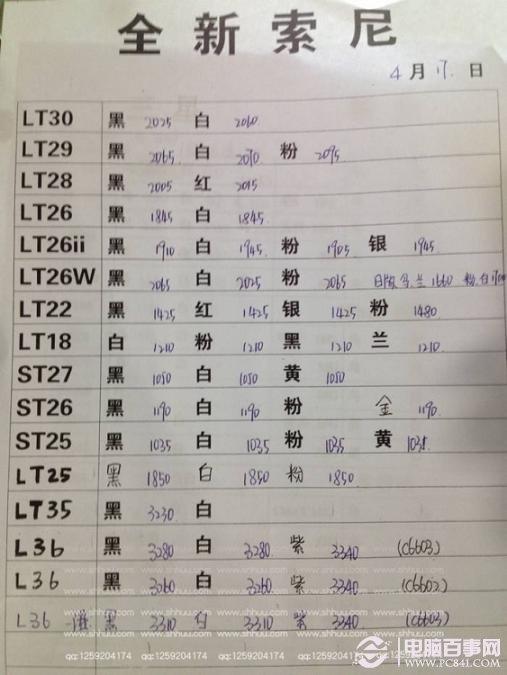 全新索尼
4月17日
LT30 黑 2025 白 2060
LT29 黑 2065 白 2070 粉 2095
LT28 黑 2005 红 2015
LT26 黑 1845 白 1845
LT26ii 黑 1910 白 1945 粉 1905 银 1945
LT26W 黑 2065 白 2025 粉 2065 日版 兰1660 粉.白
LT22 黑 1425 红 1425 银 1425 粉 1480
LT18 白 1210 粉 1210 黑 1210 兰 1210
ST27 黑 1050 白 1050 黄 1050
ST26 黑 1190 白 1190 粉 金 1190
ST25 黑 1035 白 1035 粉 1035 黄 1035
LT25 黑 1850 白 1850 粉 1850
LT35 黑 3230 白
L36 黑 3280 白 3280 紫 3340 (C6603)
L36 黑 3260 白 3260 紫 3340 (C6602)
L36 港 黑 3310 白 3310 紫 3340 (C6603)
www.shhuu.com www.shhuu.com www.shhuu.com
qq:1259204174 qq:1259204174 qq:1259204174
电脑百事网
WWW.PC841.COM